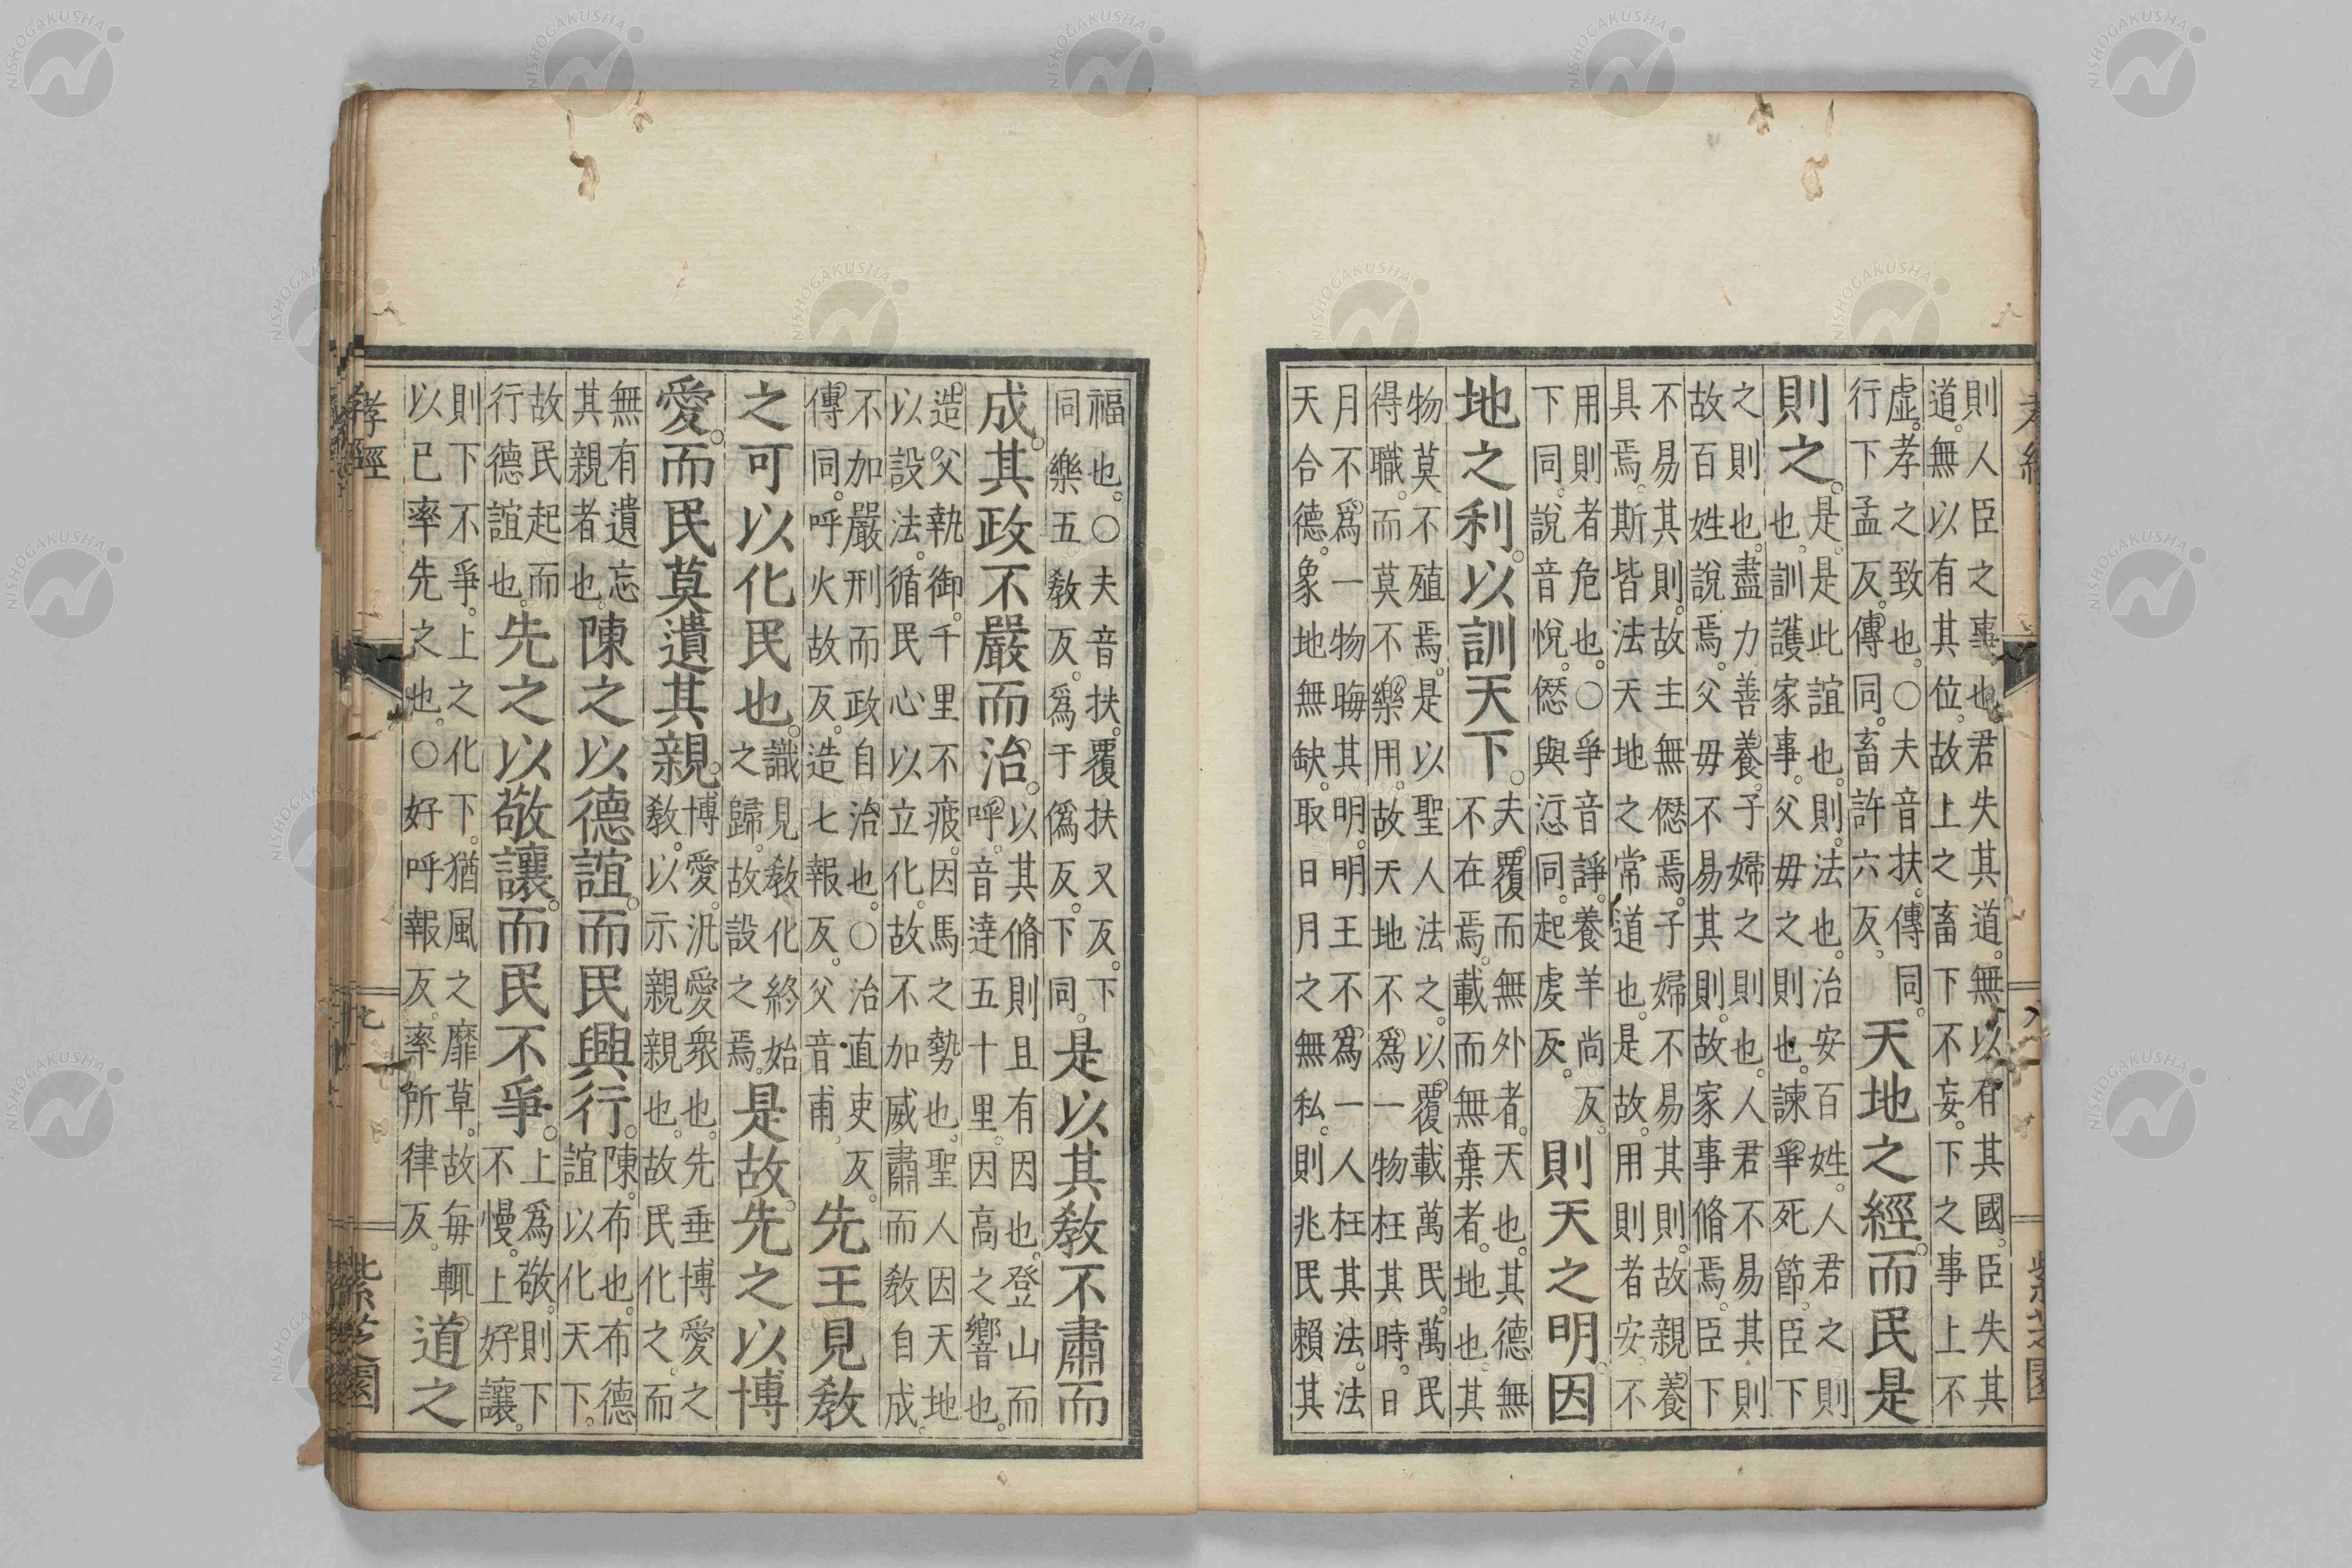 則人臣之事也君失其道。無以有其國。臣失其
道。無以有其位。故上之畜下不妄。下之事上不
虛。孝之致也。○夫音扶。傳同。
行下孟反。傳同。畜許六反。
天地之經。而民是
則之。
是。是此誼也。則。法也。治安百姓。人君之則
也。訓護家事。父母之則也。諫爭死節。臣下
之則也。盡力善養。子婦之則也。人君不易其則
故百姓說焉。父母不易其則。故家事脩焉。臣下
不易其則。故主無僁焉。子婦不易其則。故親養
具焉。斯皆法天地之常道也。是故。用則者安。不
用則者危也。○爭音諍。養羊尚反。
下同。說音悅。僁與愆同。起虔反。
則天之明。因
地之利。以訓天下。
夫覆而無外者。天也。其德無
不在焉。載而無棄者。地也。其
物莫不殖焉。是以聖人法之。以覆載萬民。萬民
得職。而莫不樂用。故天地不爲一物枉其時。日
月不爲一物晦其明。明王不爲一人枉其法。法
天合德。象地無缺。取日月之無私。則兆民賴其
福也。○夫音扶。覆扶又反。下
同樂五教反。爲于僞反。下同。
是以其教不肅而
成。其政不嚴而治。
以其脩則且有因也。登山而
呼。音達五十里。因高之響也。
造父執御。千里不疲。因馬之勢也。聖人因天地
以設法。循民心以立化。故不加威肅而教自成。
不加嚴刑而政自治也。○治直吏反。
傳同。呼火故反。造七報反。父音甫。
先王見教
之可以化民也。
識見教化終始
之歸。故設之焉。
是故。先之以博
愛。而民莫遺其親。
博愛。汎愛衆也。先垂博愛之
教。以示親親也。故民化之。而
無有遺忘
其親者也。
陳之以德誼。而民興行。
陳。布也。布德
誼以化天下。
故民起而
行德誼也。
先之以敬讓。而民不爭。
上爲敬。則下
不慢。上好讓。
則下不爭。上之化下。猶風之靡草。故每輒
以已率先之也。○好呼報反。率所律反。
道之
孝經
九
紫芝園